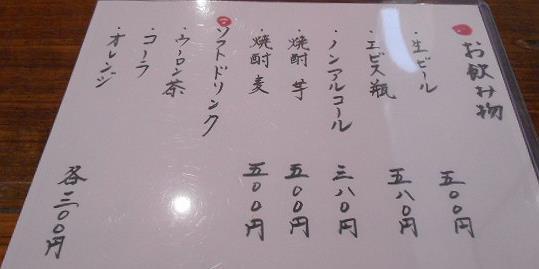 お飲み物
・生ビール 五〇〇円
・エビス瓶 五八〇円
・ノンアルコール 三八〇円
・焼酎 芋 五〇〇円
・焼酎 麦 五〇〇円
ソフトドリンク
・ウーロン茶
・コーラ
・オレンジ
各三〇〇円